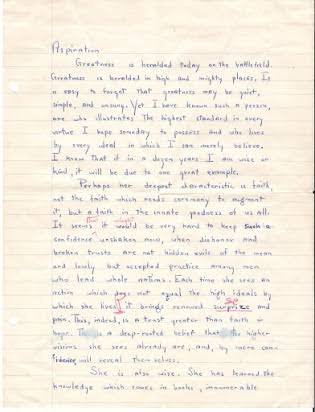 Aspiration
Greatness is heralded today on the battlefield.
Greatness is heralded in high and mighty places. It
is easy to forget that greatness may be quiet,
simple, and unsung. Yet I have known such a person,
one who illustrates the highest standard in every
virtue I hope someday to possess and who lives
by every ideal in which I can merely believe.
I know that if in a dozen years I am wise or
kind, it will be due to one great example.
Perhaps her deepest characteristic is faith,
not the faith which needs ceremony to augment
it, but a faith in the innate goodness of us all.
It seems it would be very hard to keep such a
confidence unshaken now, when dishonor and
broken trusts are not hidden evils of the mean
and lowly but accepted practice among men
who lead whole nations. Each time she sees an
action which does not equal the high ideals by
which she lives, it brings renewed surprize and
pain. This, indeed, is a trust greater than faith or
hope. This is a deep-rooted belief that the higher
visions she sees already are, and, by mere con-
fidence will reveal themselves.
She is also wise. She has learned the
knowledge which comes in books, innumerable